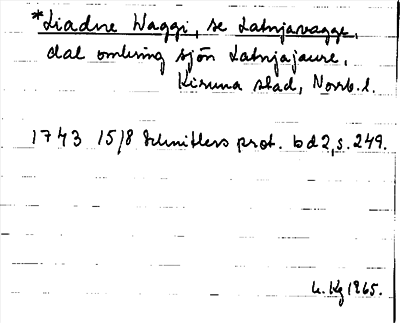 *Liadne Waggi, se Latnjavagge,
dal omkring sjön Latnjajaure,
Kiruna stad, Norrb.l.
1743 15/8 Schnitlers prot. bd 2, s. 249.
L. Kg 1965.